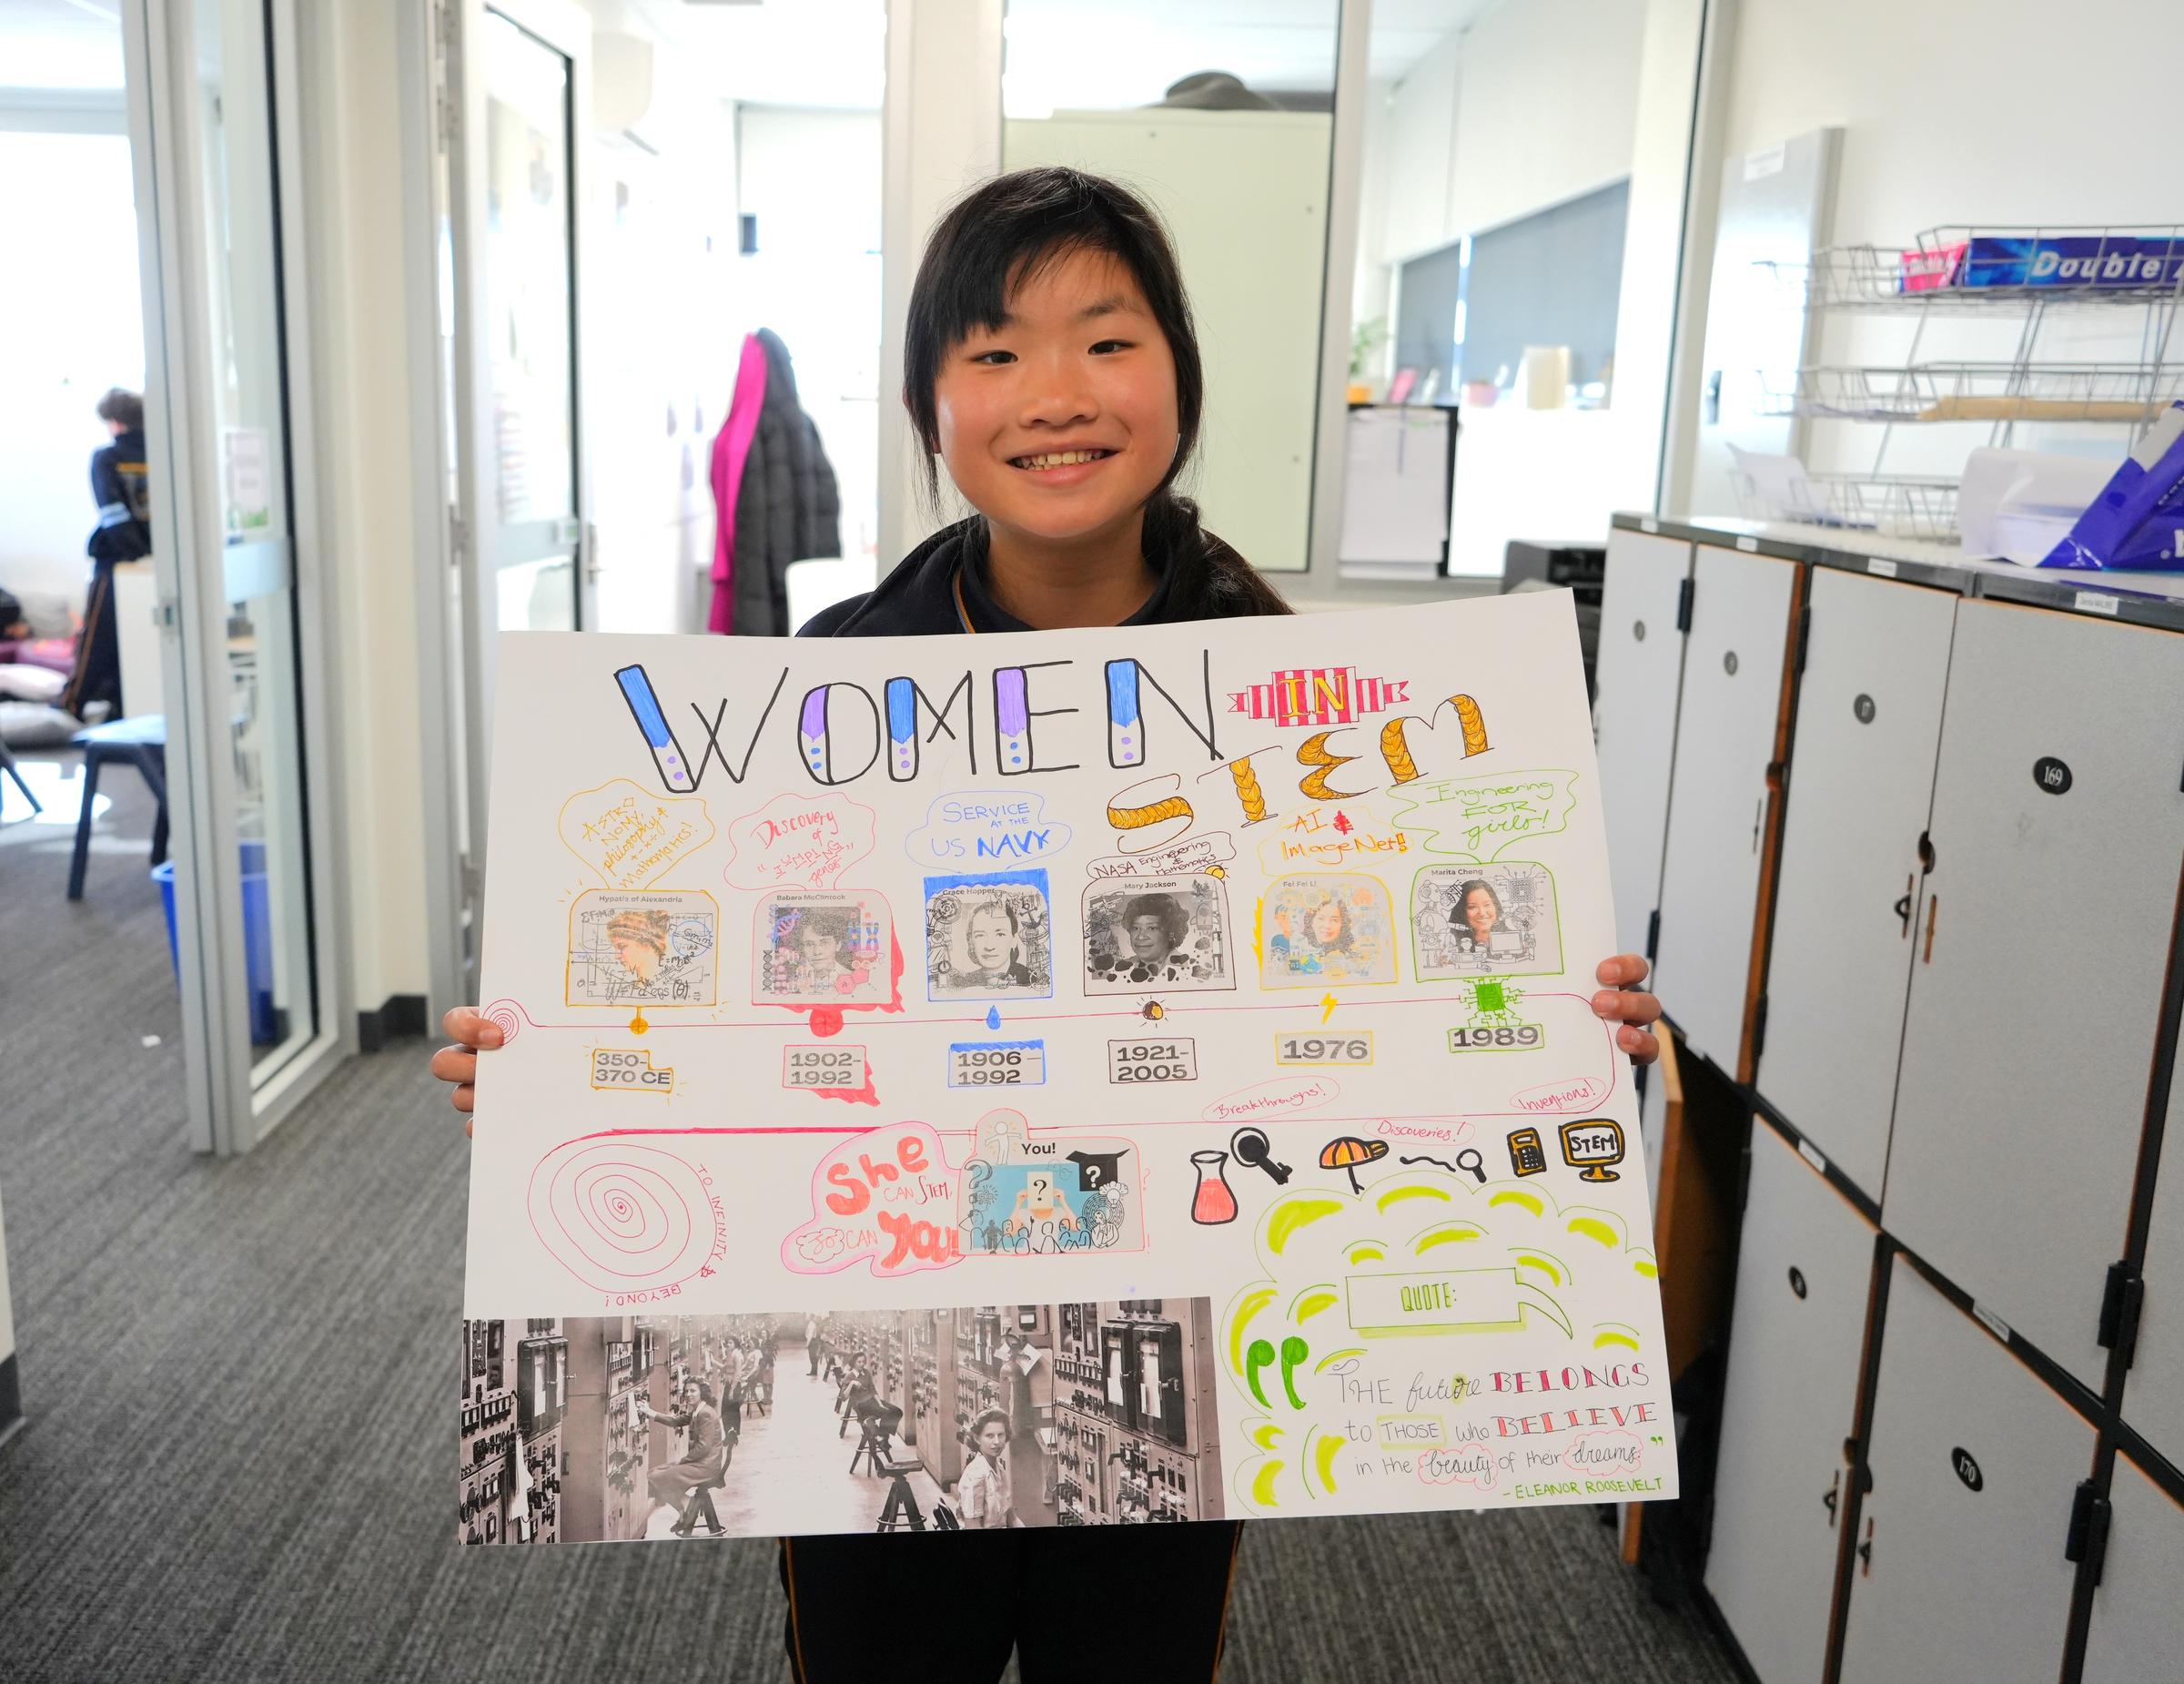 Double A
WOMEN IN
STEM
ASTRO
NOMY,
philosophy &
Mathematics!
Discovery
of
"JUMPING
genes"
SERVICE
AT THE
US NAVY
NASA Engineering
&
Mathematics
AI &
ImageNet!
Engineering
FOR
girls!
Hypatis of Alexandria
Babara McClintock
Grace Hopper
Mary Jackson
Fei Fei Li
Marita Cheng
350-
370 CE
1902-
1992
1906 –
1992
1921-
2005
1976
1989
Breakthroughs!
Discoveries!
Inventions!
STEM
TO INFINITY &
BEYOND!
She
CAN STEM,
SO CAN
YOU!
You!
?
?
?
QUOTE:
"THE future BELONGS
to THOSE who BELIEVE
in the beauty of their dreams."
- ELEANOR ROOSEVELT
17
169
170